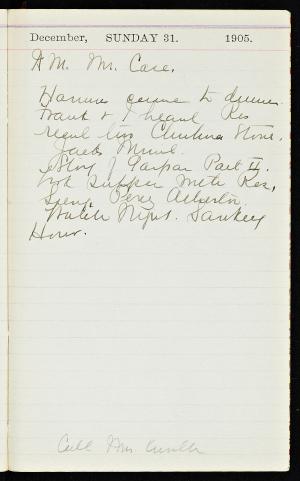 December, SUNDAY 31. 1905.
A.M. Mr. Case.
came to dinner.
Frank & I heard Res
read his Christmas Story.
Jacks
Story of Gaspar Part II.
Took supper with Res,
Percy Atherton.
Watch Night. Sankey
Hour.
Call Mrs